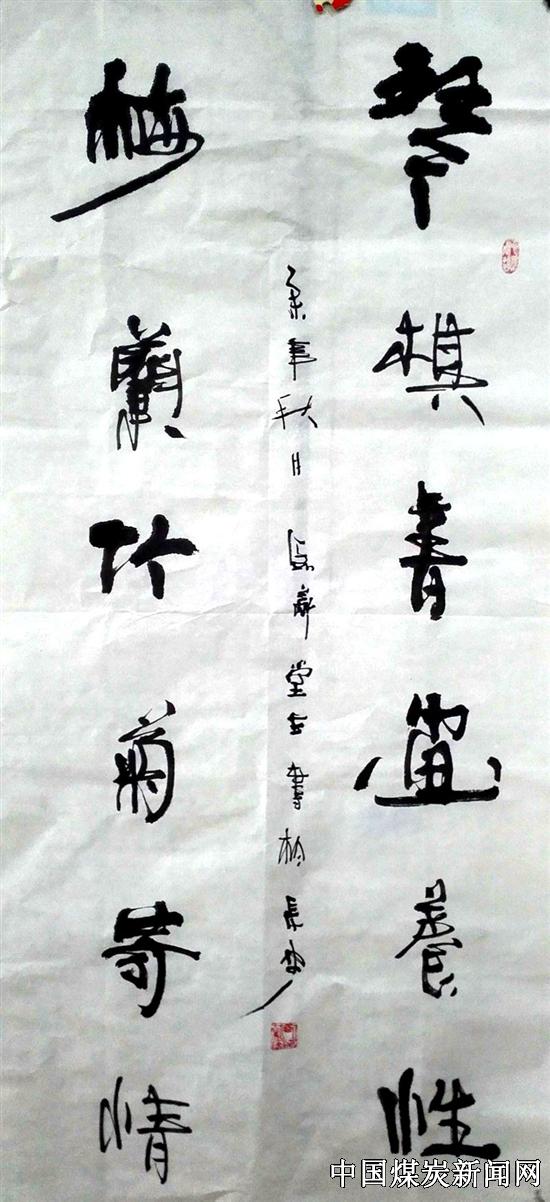 琴棋書畫養性
梅蘭竹菊寄情
秋月
堂
書於長安
中国煤炭新闻网